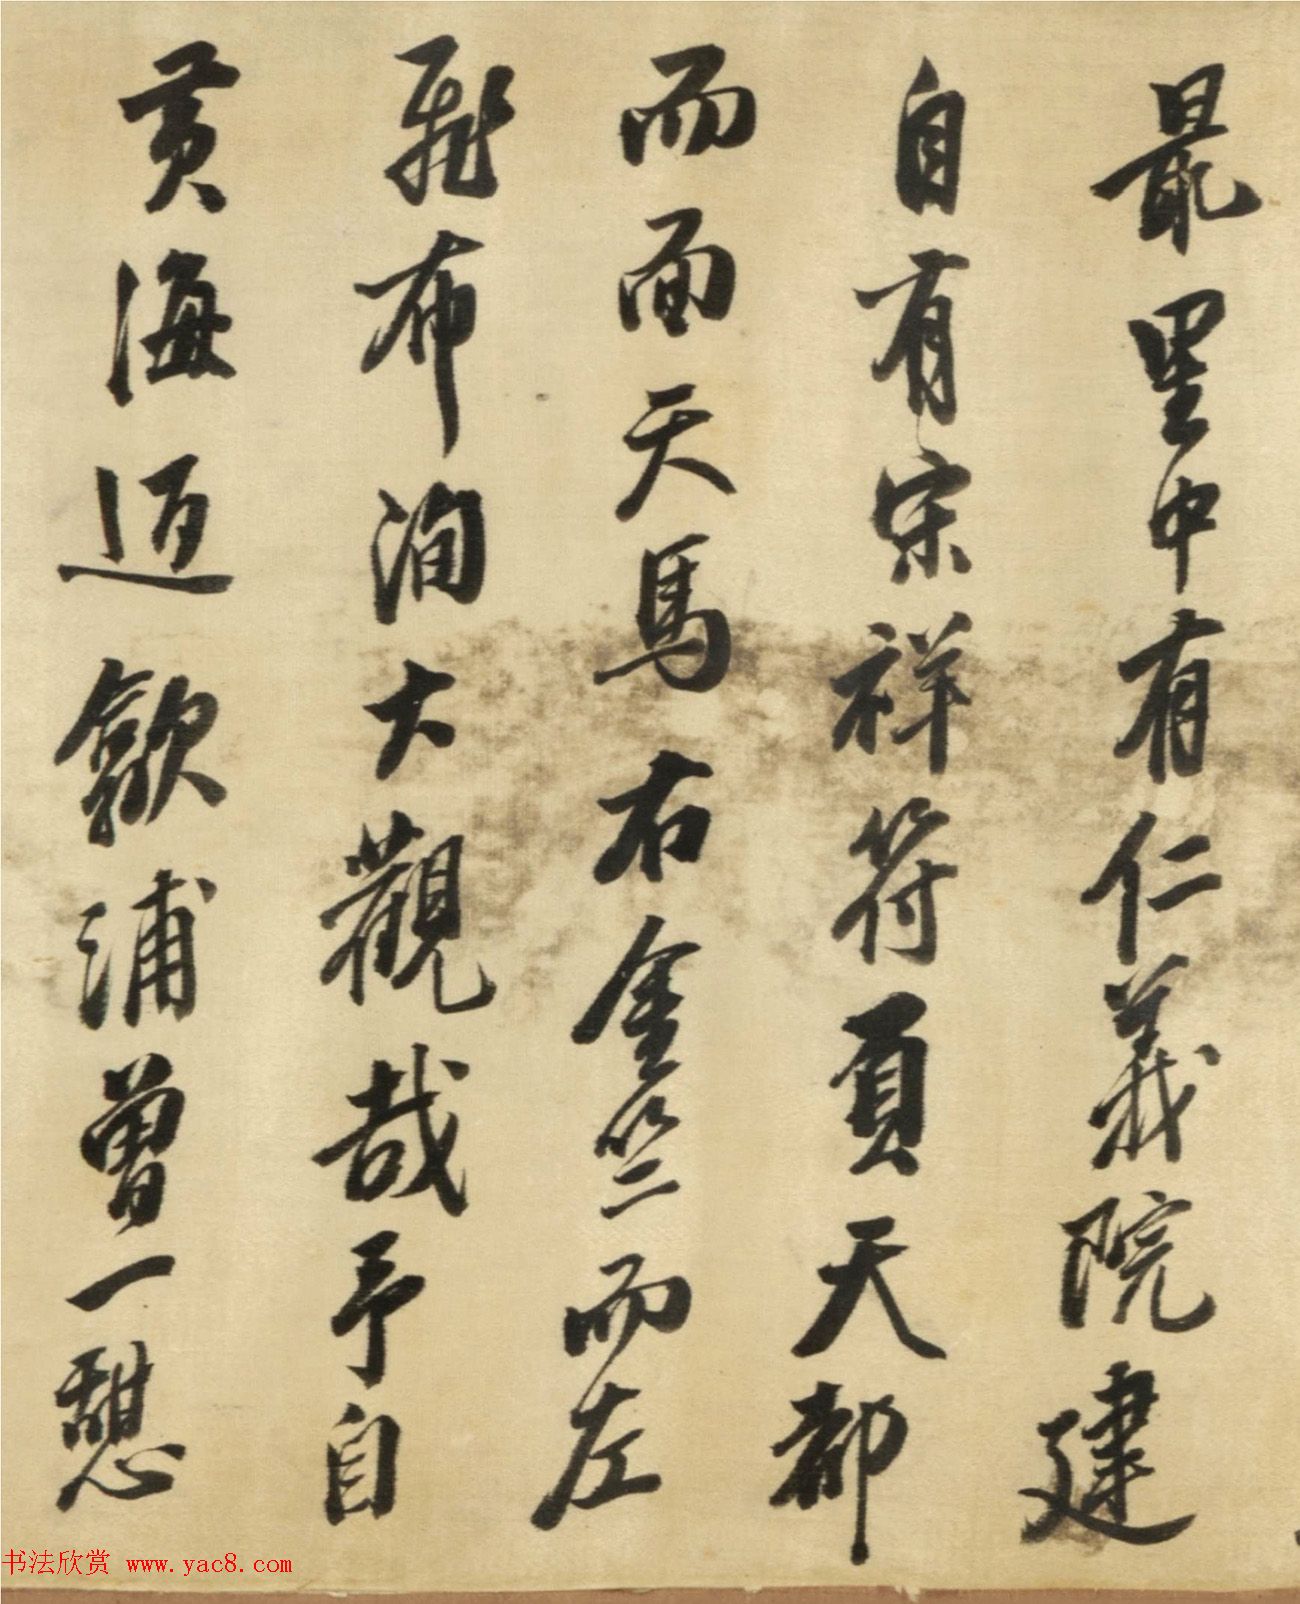 最里中有仁義院建
自有宋祥符頁天都
而面天馬右金竺而左
飛布洵大觀哉予自
黄海迈歙浦曾一憇
书法欣赏 www.yac8.com